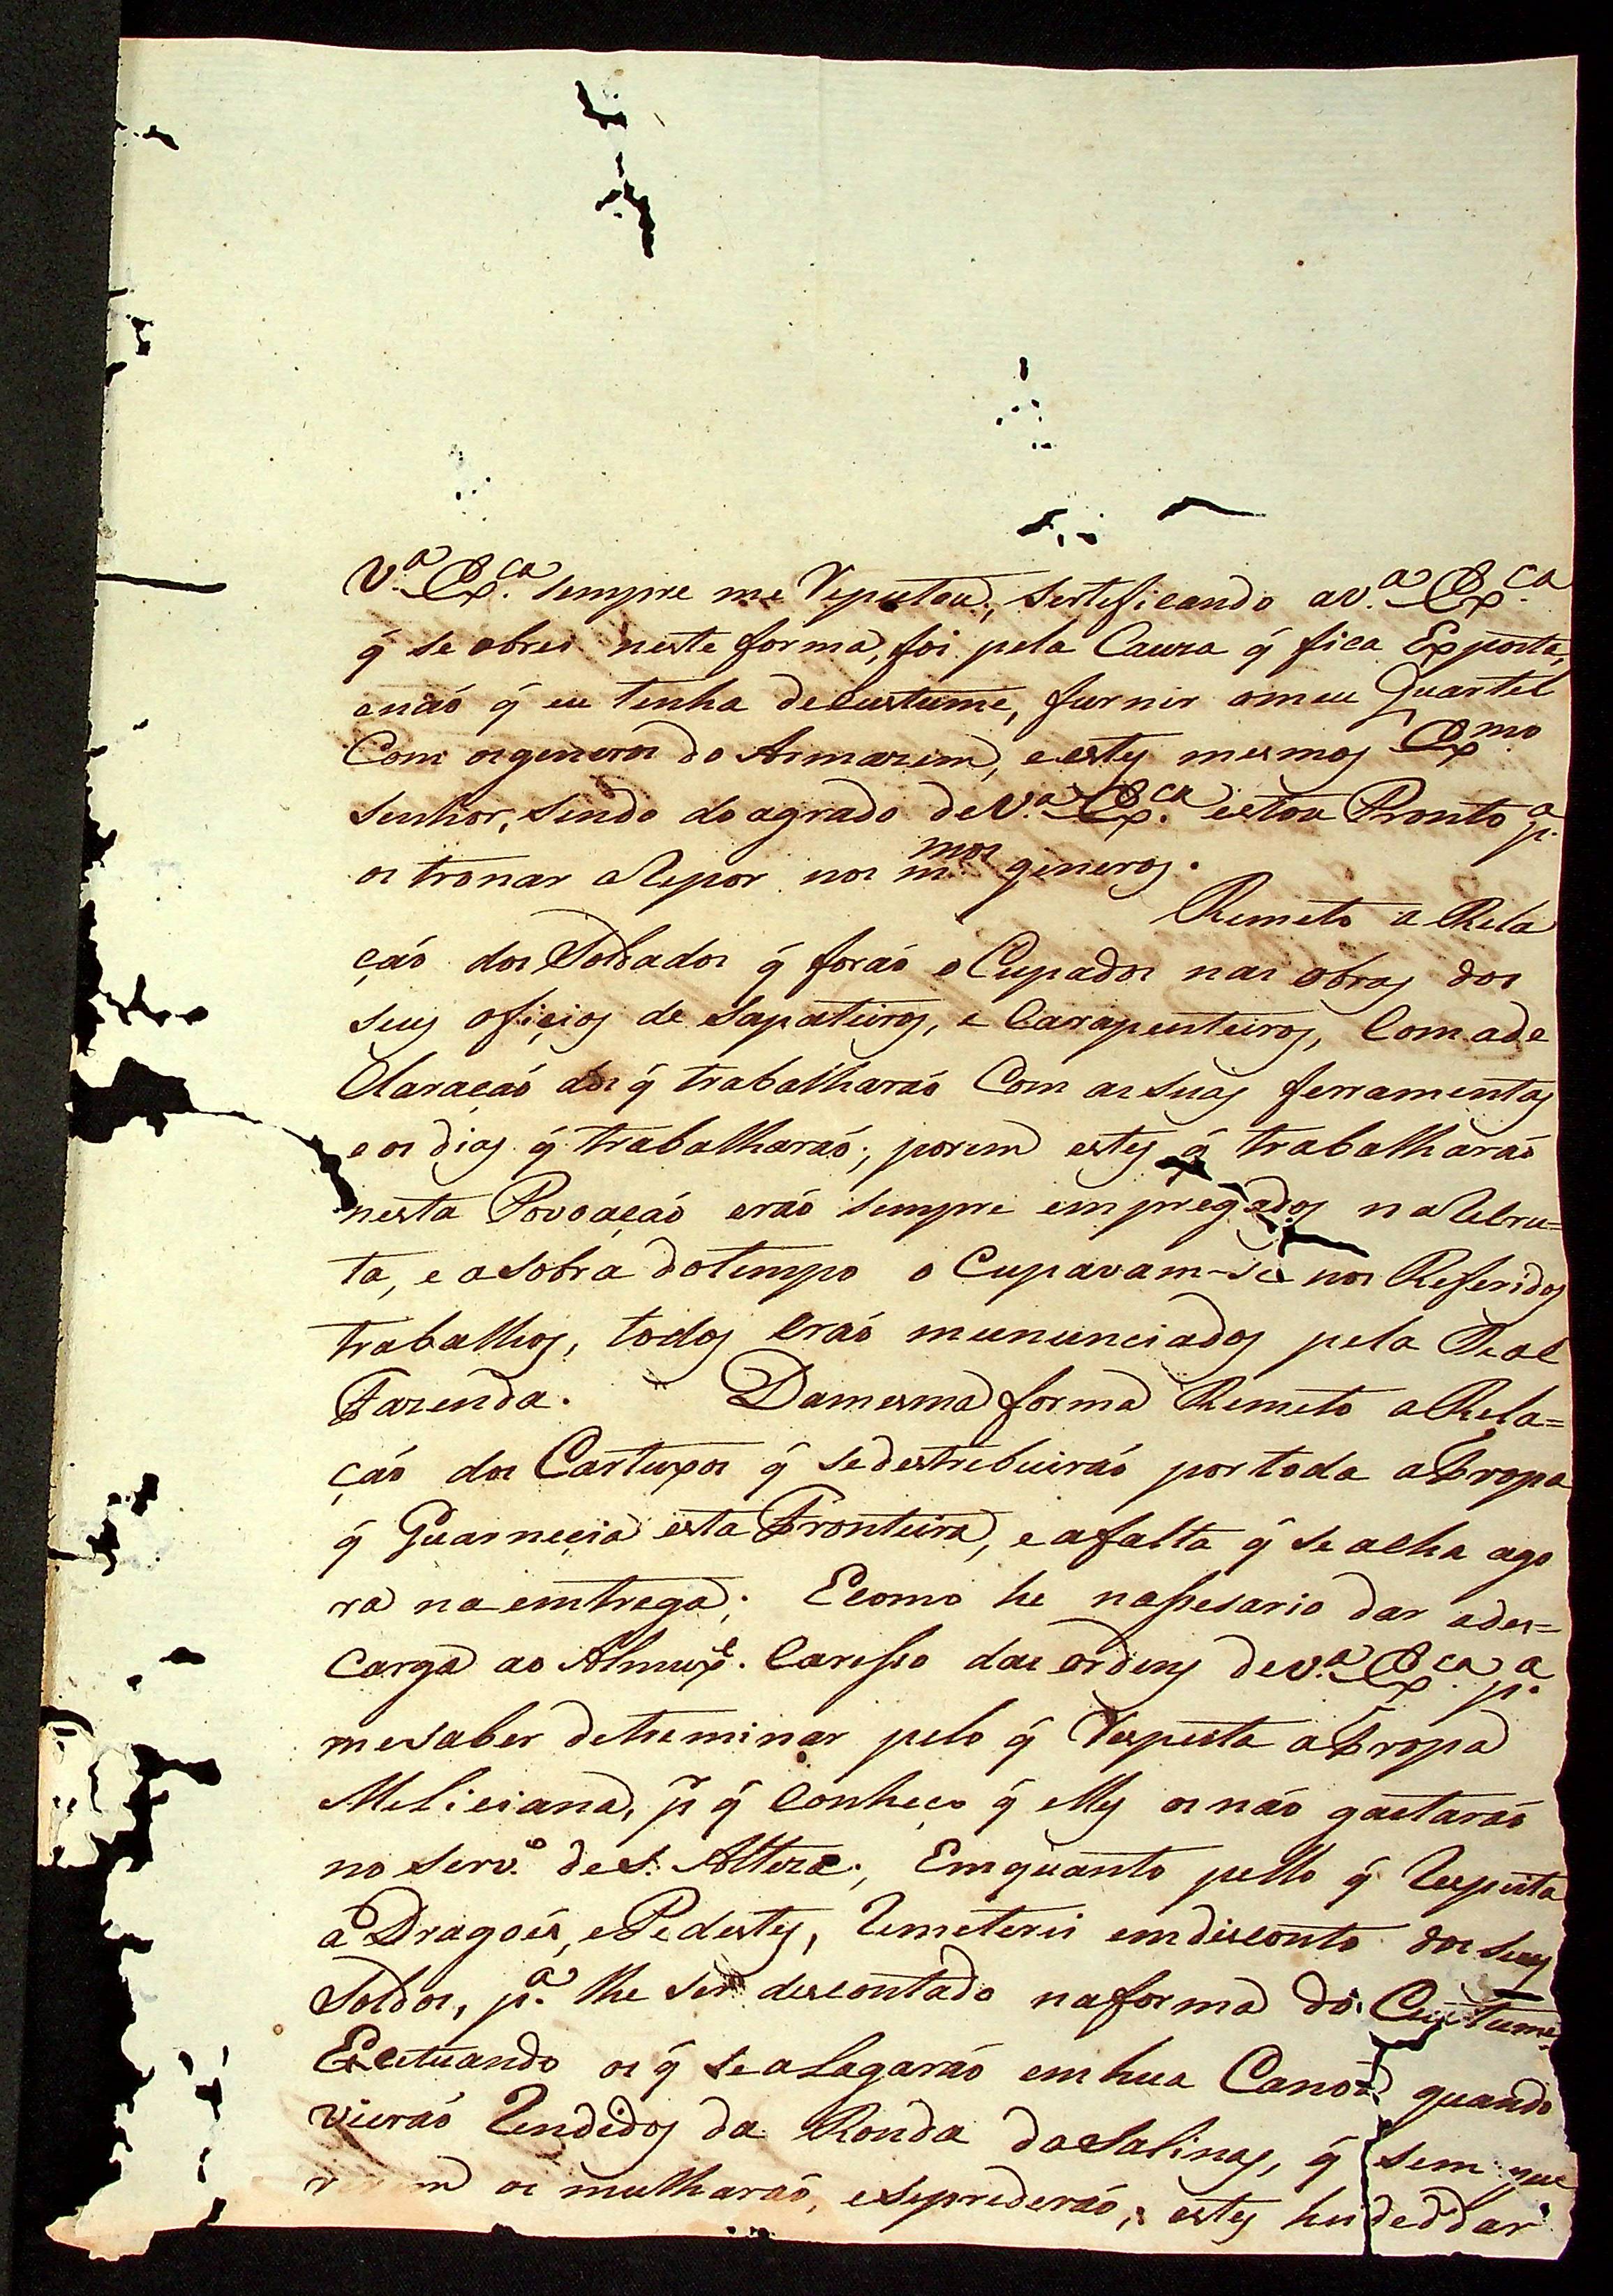 V.ª Ex.ca sempre me Reputou; serteficando a V.ª Ex.ca
q̃ se obrei neste forma, foi pela Cauza q̃ fica Exposta,
enaõ q̃ eu tenha decustume, furnir omeu Quartel
Com osgeneros do Armazem, eestes mesmos Ex.mo
Senhor, sendo do agrado deV.ª Ex.ca estou Pronto p.ª
os tronar aRepor nos m.mos generos.
Remeto a Rela
çaõ dos Soldados q̃ foraõ oCupados nas obras dos
seus ofiçios de Sapateiros, e Carapenteiros, Com ade
Claraçaõ dos q̃ trabalharaõ Com as suas ferramentas
e os dias q̃ trabalharaõ; porem estes q̃ trabalharaõ
nesta Povoaçaõ eraõ sempre empregados naRecru=
ta, e asobra dotempo oCupavam-se nos Referidos
trabalhos, todos eraõ mununciados pela Real
Fazenda. Damesma forma Remeto aRela=
çaõ dos Cartuxos q̃ sedestrebuiraõ por toda aTropa
q̃ Guarneçia esta Fronteira, e afalta q̃ se acha ago
ra na emtrega; Ecomo he nassesario dar ades=
carga ao Almux.e Caresso das ordens deV.ª Ex.ca p.ª
mesaber detreminar pelo q̃ Respeita aTropa
Meliciana, p.r q̃ Conheço q̃ elles os naõ gastaraõ
no serv.º deS. Alteza; Emquanto pello q̃ Respeita
a Dragoẽs, ePedestes, Remeterei emdisconto dos seus
Soldos, p.ª lhe ser descontado naforma do Custume
Exetuando os q̃ sealagaraõ em hua Canoa quando
vieraõ Rendidos da Ronda daSalinas, q̃ sem que
os mulharaõ, eseprederaõ; estes heidedar